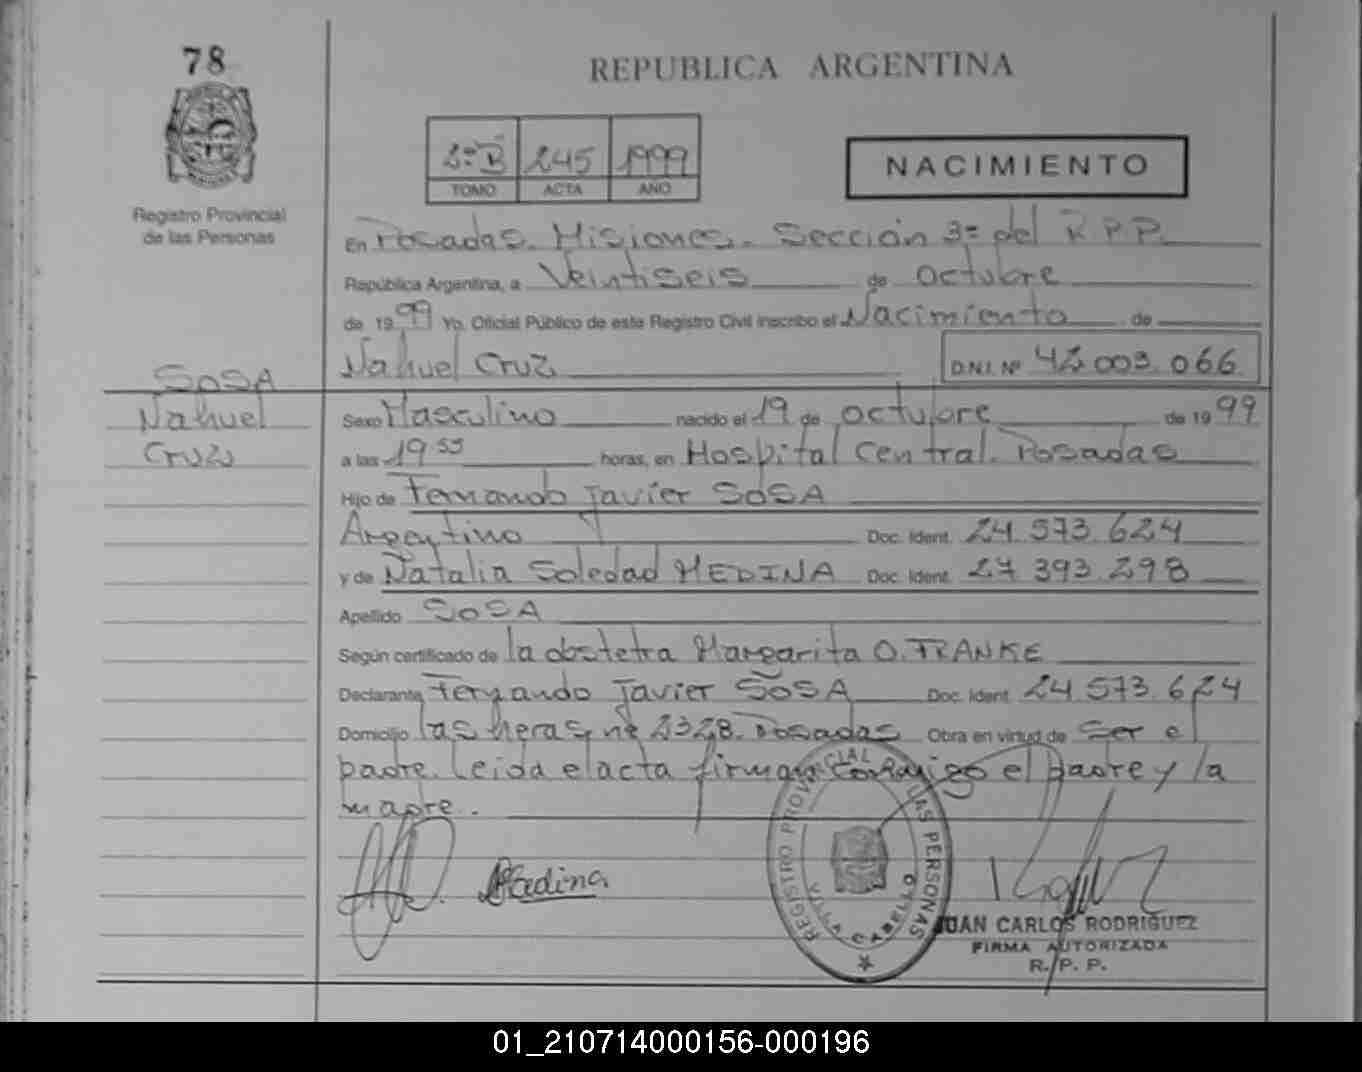 78
REPUBLICA ARGENTINA
2º B 245 1999
TOMO ACTA AÑO
NACIMIENTO
Registro Provincial
de las Personas
En Posadas. Misiones. Sección 3ª del R.P.P.
República Argentina, a Veintiseis de octubre
de 1999 Yo, Oficial Público de este Registro Civil inscribo el Nacimiento de
Nahuel Cruz D.N.I. Nº 42.003.066
SOSA
Nahuel
Cruz
Sexo Masculino nacido el 19 de octubre de 1999
a las 19 55 horas, en Hospital Central. Posadas
Hijo de Fernando Javier SOSA
Argentino Doc. Ident. 24.573.624
y de Natalia Soledad MEDINA Doc. Ident. 27.393.298
Apellido SOSA
Según certificado de la obstetra Margarita O. FRANKE
Declarante Fernando Javier SOSA Doc. Ident. 24.573.624
Domicilio las heras nº 2328. Posadas Obra en virtud de ser el
padre. Leida el acta firman conmigo el padre y la
madre.
Medina
REGISTRO PROVINCIAL DE LAS PERSONAS
VILLA CABELLO
JUAN CARLOS RODRIGUEZ
FIRMA AUTORIZADA
R. P. P.
01_210714000156-000196